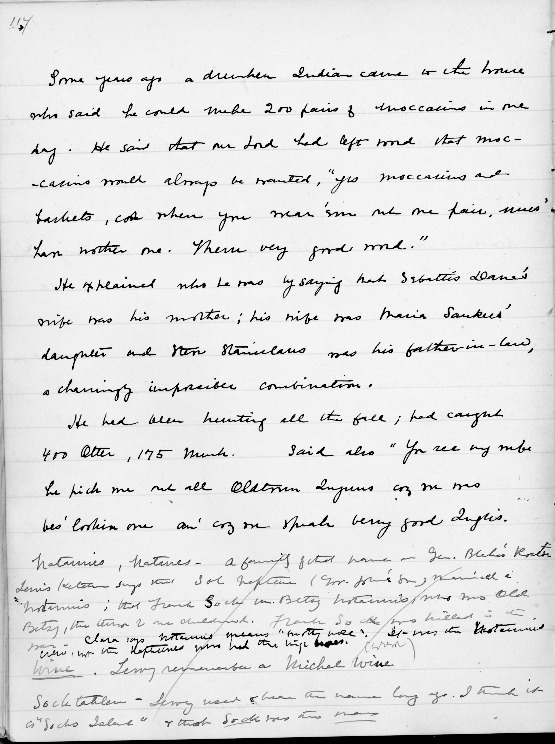 117
Some years ago a drunken Indian came to the house
who said he could make 200 pairs of moccasins in one
day. He said that our Lord had left word that moc-
-casins would always be wanted, "yes moccasins and
baskets, coz when you wear 'em out one pair, mus'
have nother one. Them very good word."
He explained who he was by saying that Sebattis Dana's
wife was his mother; his wife was Maria Saukees'
daughter and Steve Stanislaus was his father-in-law,
a charmingly impossible combination.
He had been hunting all the fall; had caught
400 Otter, 175 Mush. Said also "You see my wife
he pick me out all Oldtown Injuns coz me was
bes' lookin one an' coz me speak very good Inglis.
Natannis, Natanes - A family of that name in Gen. Blake's Roster
Lewis Ketchum says that Sol Neptune (Gov. John's Son) married a
"Notannis"; that Frank Sock m. Betsy Notannis who was Old
Betsy, the mother of one child. Frank Sock was killed in the
war. Clara says Notannis means
view. not the Neptunes who had the It was the Notannis
Wine. Leroy remembers a Michel Wine
Socktahlen - Leroy used to hear the name long ago. I think it
is "Socks Island" & that Sock was the man